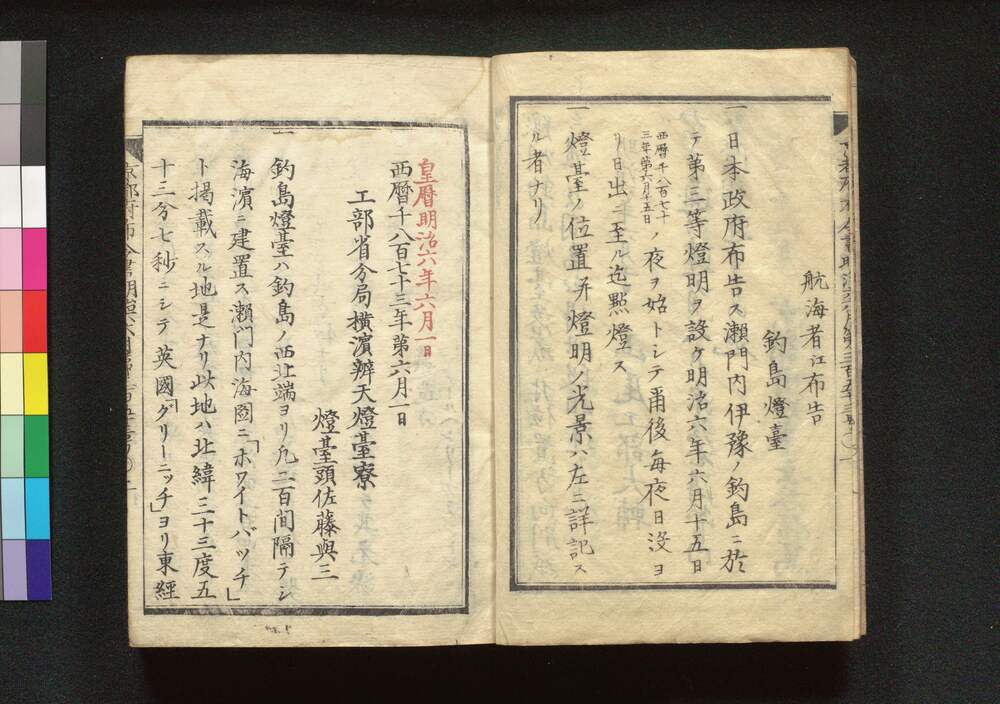 航海者江布告
釣島燈臺
一日本政府布告ス瀬門内伊豫ノ釣島ニ於
テ第三等燈明ヲ設ケ明治六年六月十五日
西暦千八百七十
三年第六月十五日
ノ夜ヲ始トシテ爾後每夜日没ヨ
リ日出ニ至ル迄點燈ス
一燈臺ノ位置并燈明ノ光景ハ左ニ詳記ス
ル者ナリ
皇暦明治六年六月一日
西暦千八百七十三年第六月一日
工部省分局横濱辨天燈臺寮
燈臺頭佐藤與三
一釣島燈臺ハ釣島ノ西北端ヨリ凡二百間隔テシ
海濱ニ建置ス瀬門内海圖ニ「ホワイトバッチ」
ト掲載スル地是ナリ此地ハ北緯三十三度五
十三分七秒ニシテ英國「グリーニッチ」ヨリ東經